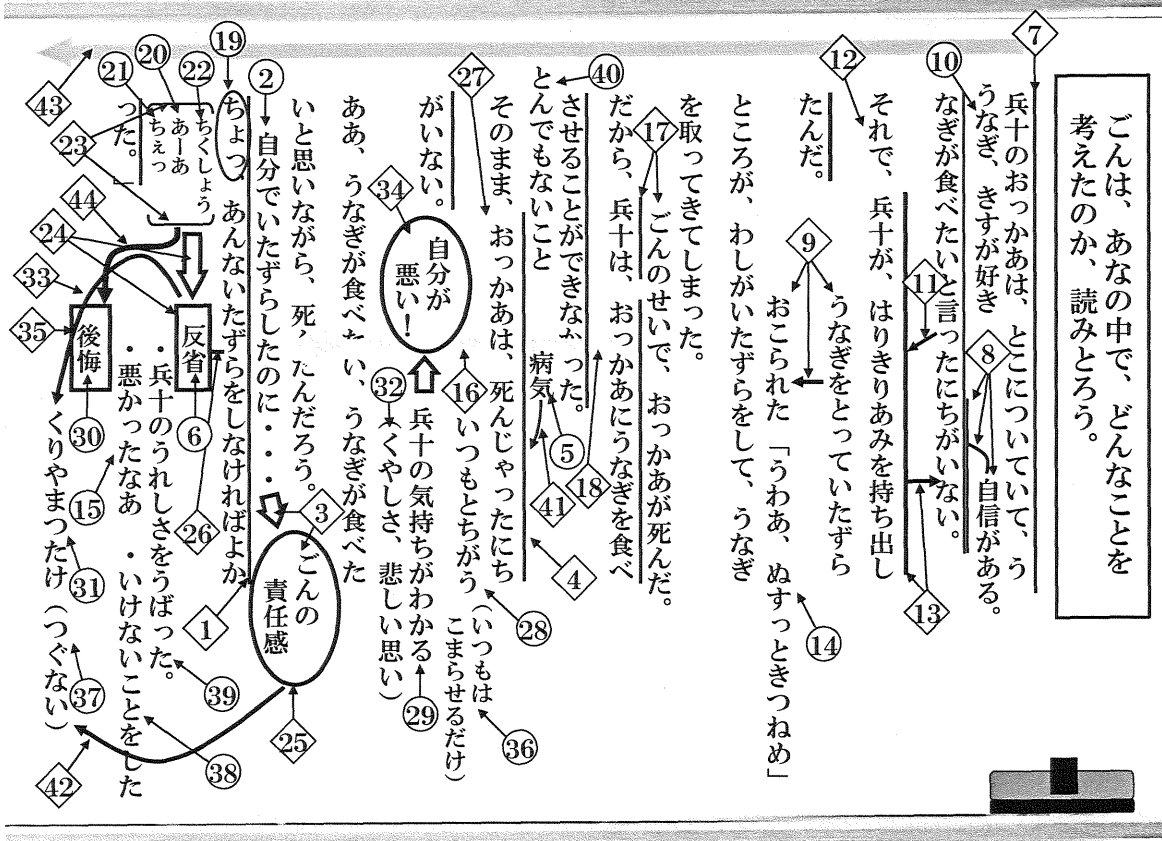 ごんは、あなの中で、どんなことを
考えたのか、読みとろう。
7
兵十のおっかあは、とこについていて、う
10
うなぎ、きすが好き
8
自信がある。
なぎが食べたいと言ったにちがいない。
11
12
それで、兵十が、はりきりあみを持ち出し
13
たんだ。
9
うなぎをとっていたずら
おこられた「うわあ、ぬすっときつねめ」
14
ところが、わしがいたずらをして、うなぎ
を取ってきてしまった。
17
ごんのせいで、おっかあが死んだ。
だから、兵十は、おっかあにうなぎを食べ
18
40
させることができなかった。
とんでもないこと
病気
5
41
27
そのまま、おっかあは、死んじゃったにち
4
がいない。
16
いつもとちがう(いつもは
こまらせるだけ)
28
36
34
自分が
悪い!
兵十の気持ちがわかる
29
32
(くやしさ、悲しい思い)
ああ、うなぎが食べたい、うなぎが食べた
いと思いながら、死んだんだろう。
3
ごんの
責任感
25
2
自分でいたずらしたのに・・・
1
19
ちょっ、あんないたずらをしなければよか
った。」
22
ちくしょう
20
あーあ
21
ちぇっ
23
43
44
24
33
35
反省
6
26
・兵十のうれしさをうばった。
39
・悪かったなあ
15
・いけないことをした
38
後悔
30
くりやまつたけ(つぐない)
31
37
42